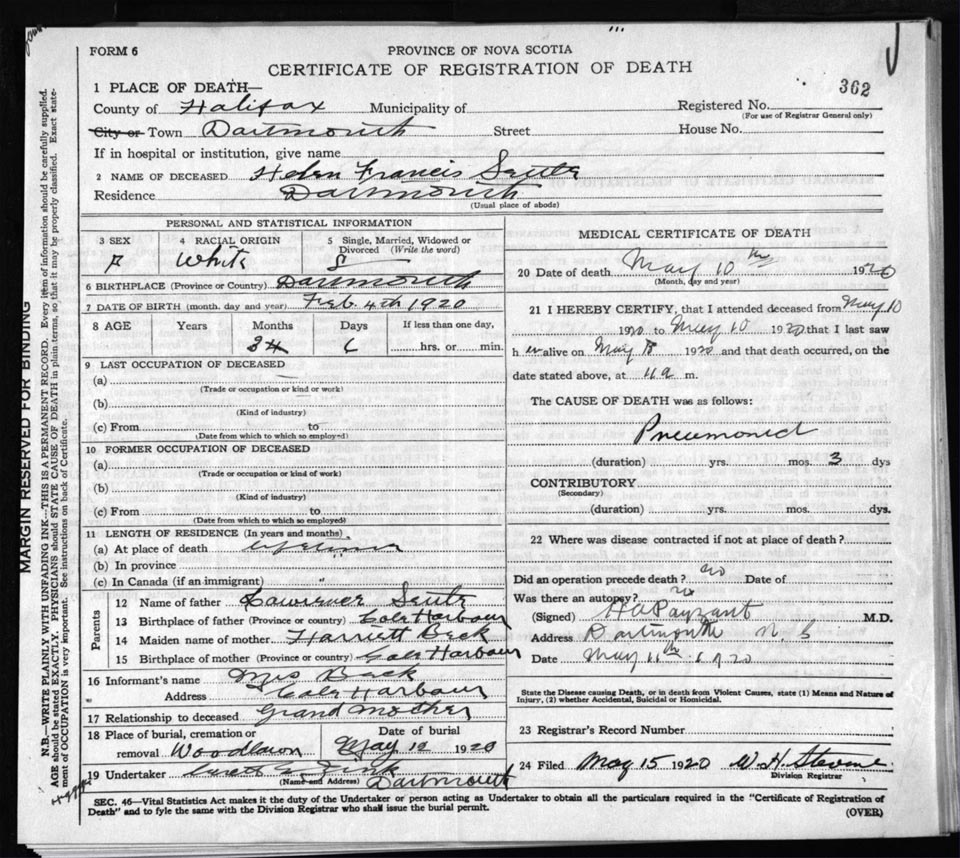 FORM 6
PROVINCE OF NOVA SCOTIA
CERTIFICATE OF REGISTRATION OF DEATH
362
1 PLACE OF DEATH—
County of Halifax Municipality of Registered No.
(For use of Registrar General only)
City or Town Dartmouth Street House No.
If in hospital or institution, give name
2 NAME OF DECEASED Helen Francis
Residence Dartmouth
(Usual place of abode)
PERSONAL AND STATISTICAL INFORMATION
3 SEX 4 RACIAL ORIGIN 5 Single, Married, Widowed or Divorced (Write the word)
F White S
6 BIRTHPLACE (Province or Country) Dartmouth
7 DATE OF BIRTH (month, day and year) Feb 4th 1920
8 AGE Years Months Days If less than one day,
3 6 hrs. or min.
9 LAST OCCUPATION OF DECEASED
(a)
(Trade or occupation or kind or work)
(b)
(Kind of industry)
(c) From to
(Date from which to which so employed)
10 FORMER OCCUPATION OF DECEASED
(a)
(Trade or occupation or kind of work)
(b)
(Kind of industry)
(c) From to
(Date from which to which so employed)
11 LENGTH OF RESIDENCE (In years and months)
(a) At place of death lifetime
(b) In province
(c) In Canada (if an immigrant) "
Parents
12 Name of father Lawrence
13 Birthplace of father (Province or country) Cole Harbour
14 Maiden name of mother Harriett Beck
15 Birthplace of mother (Province or country) Cole Harbour
16 Informant's name Mrs Beck
Address Cole Harbour
17 Relationship to deceased Grand Mother
18 Place of burial, cremation or removal Woodlawn
Date of burial May 12 1920
19 Undertaker Dartmouth
(Name and Address)
MEDICAL CERTIFICATE OF DEATH
20 Date of death May 10th 1920
(Month, day and year)
21 I HEREBY CERTIFY, that I attended deceased from May 10
1920 to May 10 1920 that I last saw
h er alive on May 1920 and that death occurred, on the
date stated above, at 4 a m.
The CAUSE OF DEATH was as follows:
Pneumonia
(duration) yrs. mos. 3 dys
CONTRIBUTORY
(Secondary)
(duration) yrs. mos. dys.
22 Where was disease contracted if not at place of death?
Did an operation precede death? no Date of
Was there an autopsy? no
(Signed) H A Payzant M.D.
Address Dartmouth N. S
Date May 11th 1920
State the Disease causing Death, or in death from Violent Causes, state (1) Means and Nature of
Injury, (2) whether Accidental, Suicidal or Homicidal.
23 Registrar's Record Number
24 Filed May 15 1920 W. H. Stevens
Division Registrar
SEC. 46—Vital Statistics Act makes it the duty of the Undertaker or person acting as Undertaker to obtain all the particulars required in the "Certificate of Registration of
Death" and to fyle the same with the Division Registrar who shall issue the burial permit.
(OVER)
MARGIN RESERVED FOR BINDING
N.B.—WRITE PLAINLY WITH UNFADING INK—THIS IS A PERMANENT RECORD. Every item of information should be carefully supplied.
AGE should be stated EXACTLY. PHYSICIANS should STATE CAUSE OF DEATH in plain terms, so that it may be properly classified. Exact state-
ment of OCCUPATION is very important. See instructions on back of Certificate.